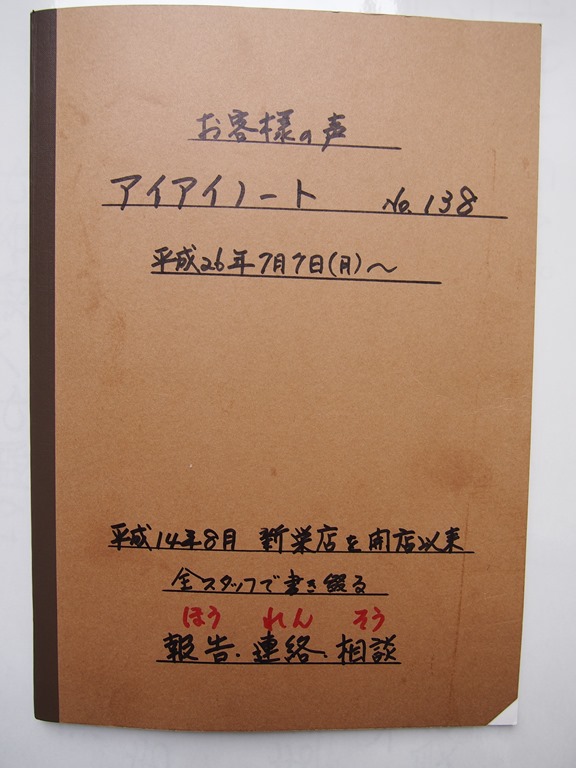 お客様の声
アイアイノート No.138
平成26年7月7日(月)～
平成14年8月 新栄店を開店以来
全スタッフで書き綴る
ほう れん そう
報告.連絡.相談